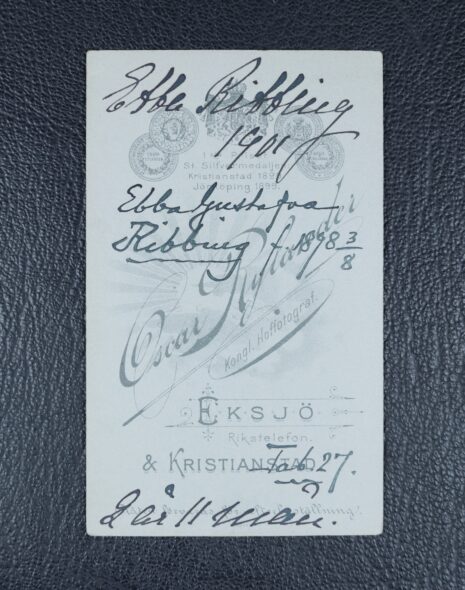 Ebba Ribbing
1901
St. Silfvermedaljer
Kristianstad 189
Jönköping 1899.
Ebba Gustafva
Ribbing f. 1898 3/8
Oscar Rylander
Kongl. Hoffotograf.
EKSJÖ
Rikstelefon.
& KRISTIANSTAD.
Tab. 27.
2 år 11 mån.